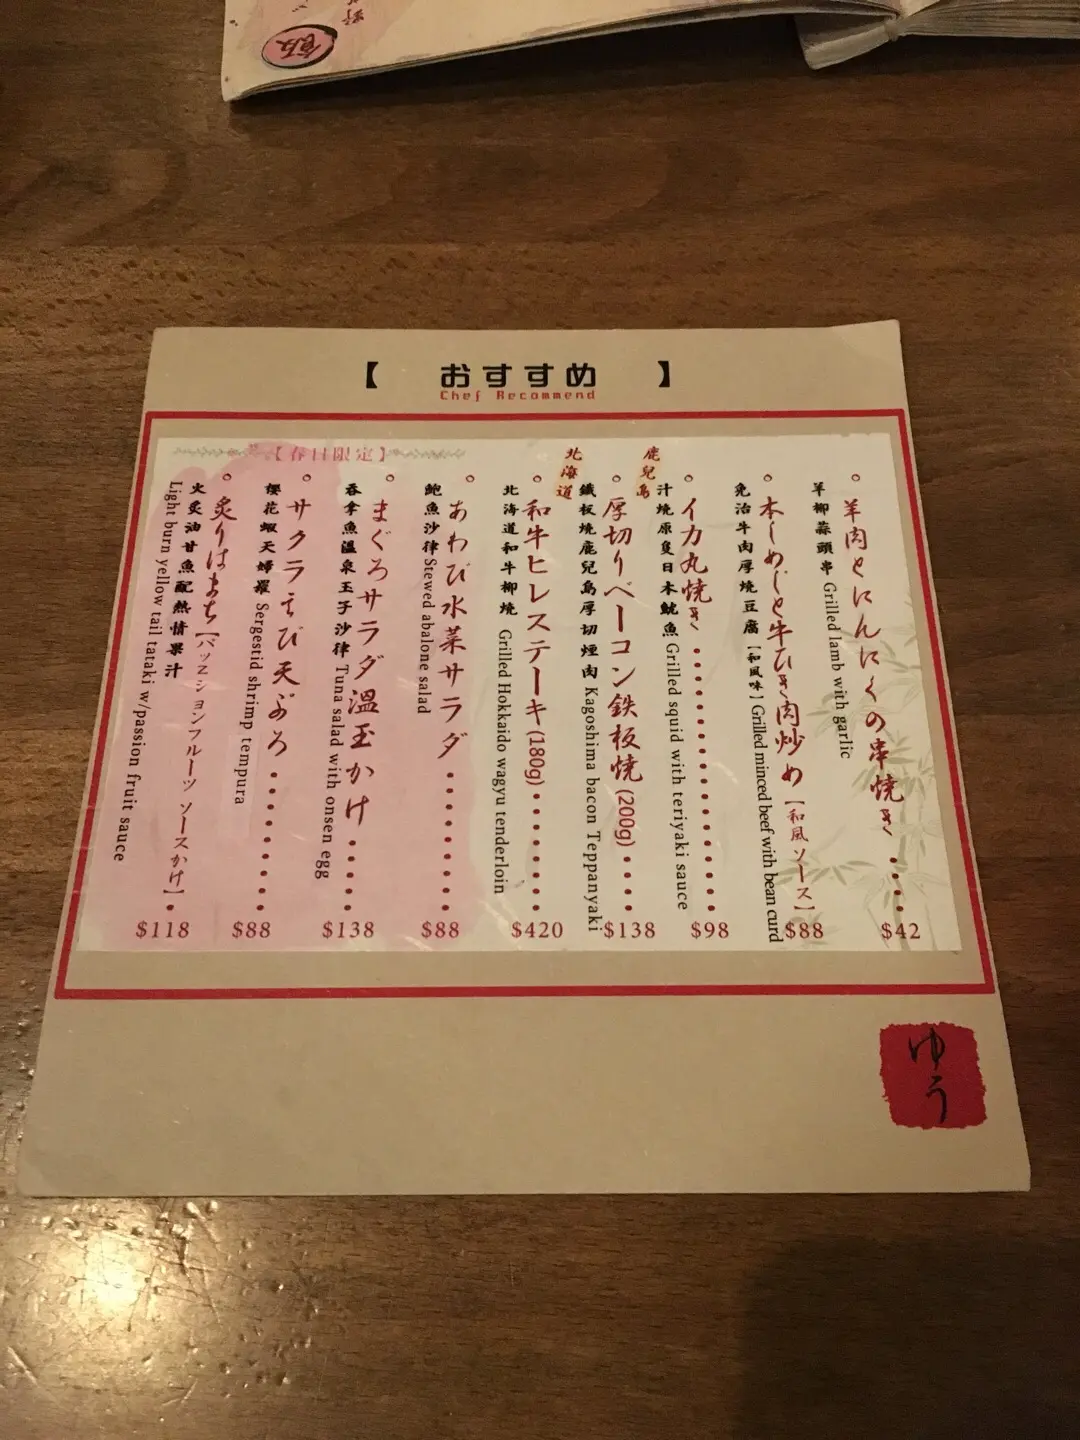 飯
【 おすすめ 】
Chef Recommend
羊肉とにんにくの串焼き ・・・・ $42
羊柳蒜頭串 Grilled lamb with garlic
本しめじと牛ひき肉炒め【和風ソース】 $88
免治牛肉厚燒豆腐【和風味】Grilled minced beef with bean curd
イカ丸焼き ・・・・・・・・・・・・ $98
汁燒原隻日本魷魚 Grilled squid with teriyaki sauce
鹿兒島
厚切りベーコン鉄板焼 (200g) ・・・・ $138
鐵板燒鹿兒島厚切煙肉 Kagoshima bacon Teppanyaki
北海道
和牛ヒレステーキ (180g) ・・・・・・・ $420
北海道和牛柳燒 Grilled Hokkaido wagyu tenderloin
【春日限定】
あわび水菜サラダ ・・・・・・・・ $88
鮑魚沙律 Stewed abalone salad
まぐろサラダ温玉かけ ・・・・・ $138
吞拿魚溫泉玉子沙律 Tuna salad with onsen egg
サクラえび天ぷら ・・・・・・・・ $88
櫻花蝦天婦羅 Sergestid shrimp tempura
炙りはまち【パッションフルーツ ソースかけ】・ $118
火炙油甘魚配熱情果汁
Light burn yellow tail tataki w/passion fruit sauce
ゆう